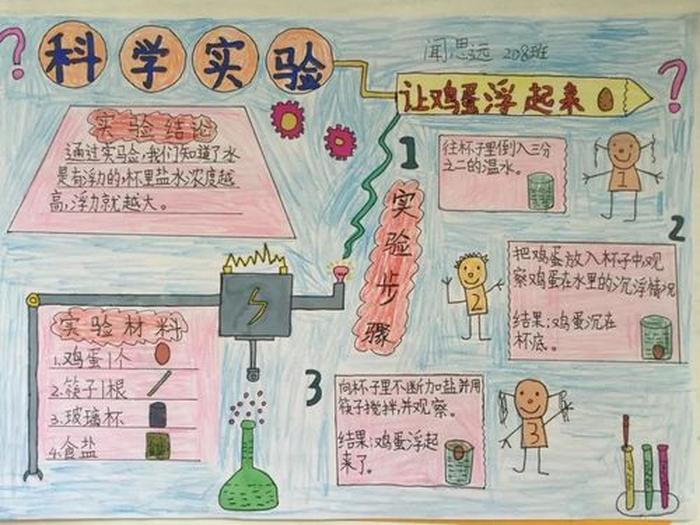 ?
科学实验
闻思远 208班
让鸡蛋浮起来
?
实验结论
通过实验,我们知道了水
是有浮力的,杯里盐水浓度越
高,浮力就越大。
实验步骤
1
往杯子里倒入三分
之二的温水。
1
2
把鸡蛋放入杯子中,观
察鸡蛋在水里的沉浮情况
结果:鸡蛋沉在
杯底。
2
3
向杯子里不断加盐并用
筷子搅拌,并观察。
结果:鸡蛋浮起
来了。
3
实验材料
1.鸡蛋1个
2.筷子1根
3.玻璃杯
4.食盐